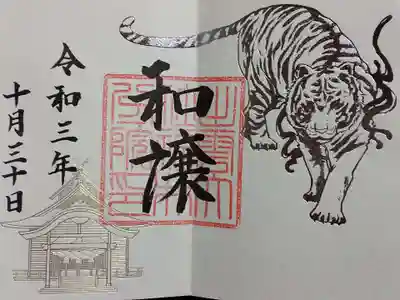 和譲
令和三年
十月三十日